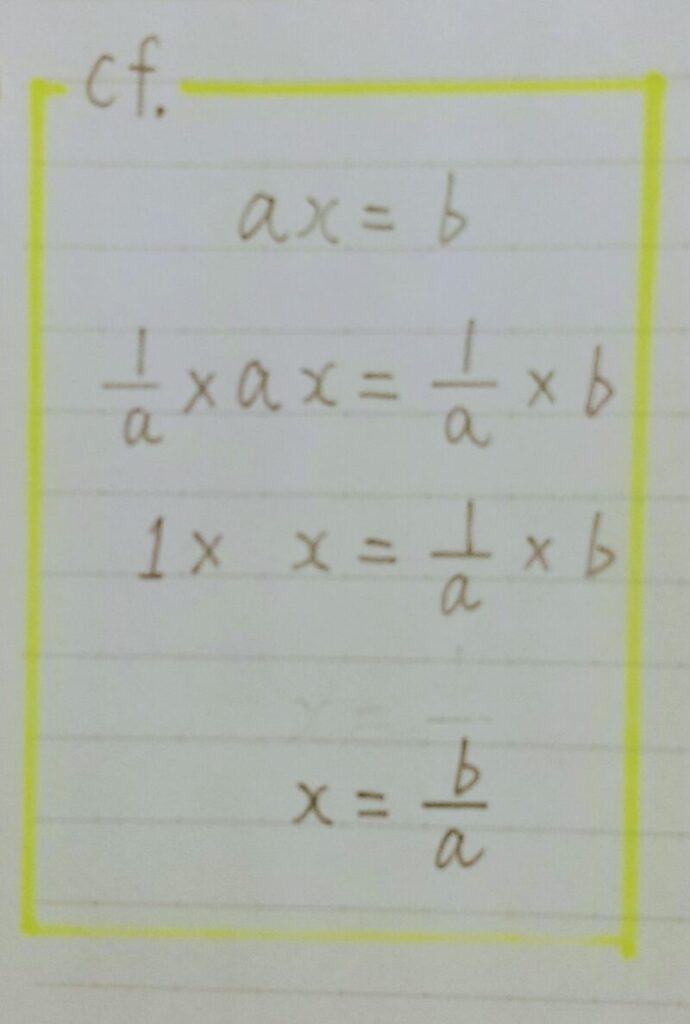 cf.
ax = b
1/a × ax = 1/a × b
1 × x = 1/a × b
x = b/a